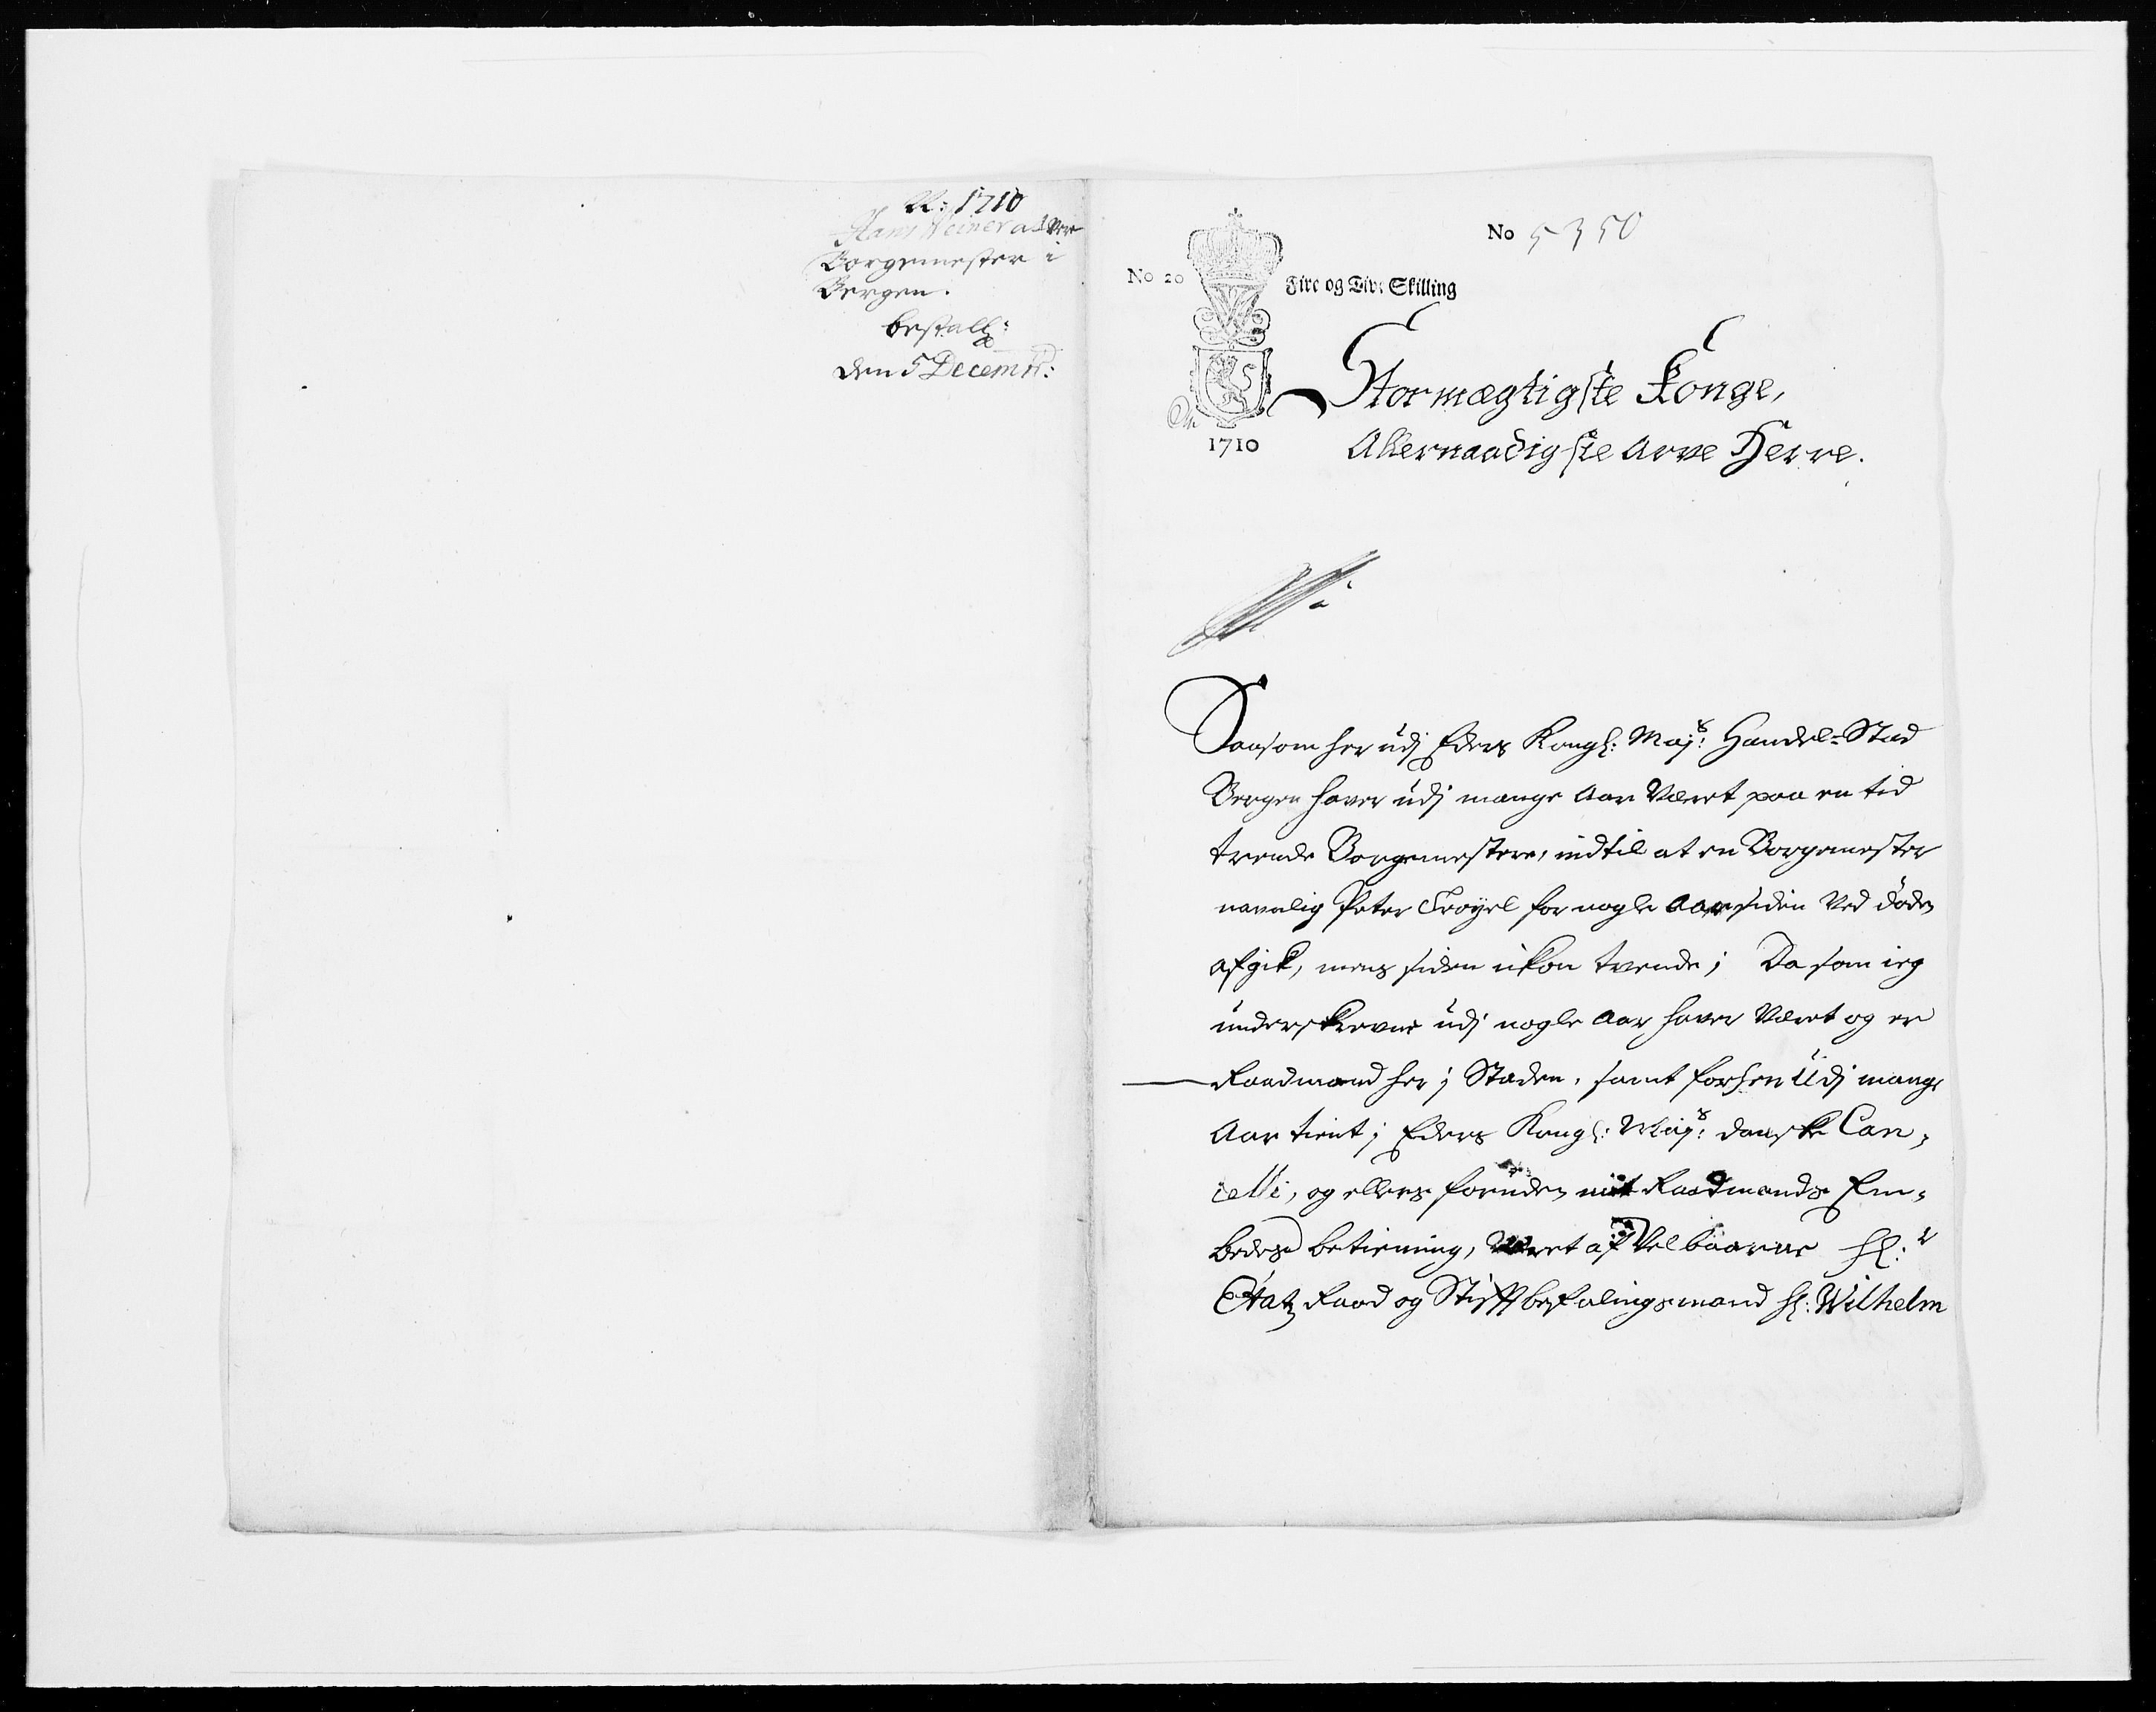 A: 1710
Hans Weiner at vere
Borgemester i
Bergen.
bestall:
den 5 Decemb:
No 5350
No 20
Fire og Tive Skilling
1710
Stormægtigste Konge,
Allernaadigste Arve Herre.
Saasom her udj Eders Kongl: Majts: Handel-Stad
Bergen haver udj mange Aar Været paa en tid
trende Borgemestere, indtil at en Borgemester
navnlig Peter Frøyel for nogle Aar siden Ved døden
afgik, mens siden ikon tvende; Da som ieg
underskrevne udj nogle Aar haver Været og er
Raadmand her j Staden, samt forhen Udj mange
Aar tient j Eders Kongl: Majts: danske Can-
celli, og ellers foruden mit Raadmands Em-
bedes betiening, Været af Velbaarne Hr:
Etatz Raad og Stiftbefalingsmand Hr: Wilhelm